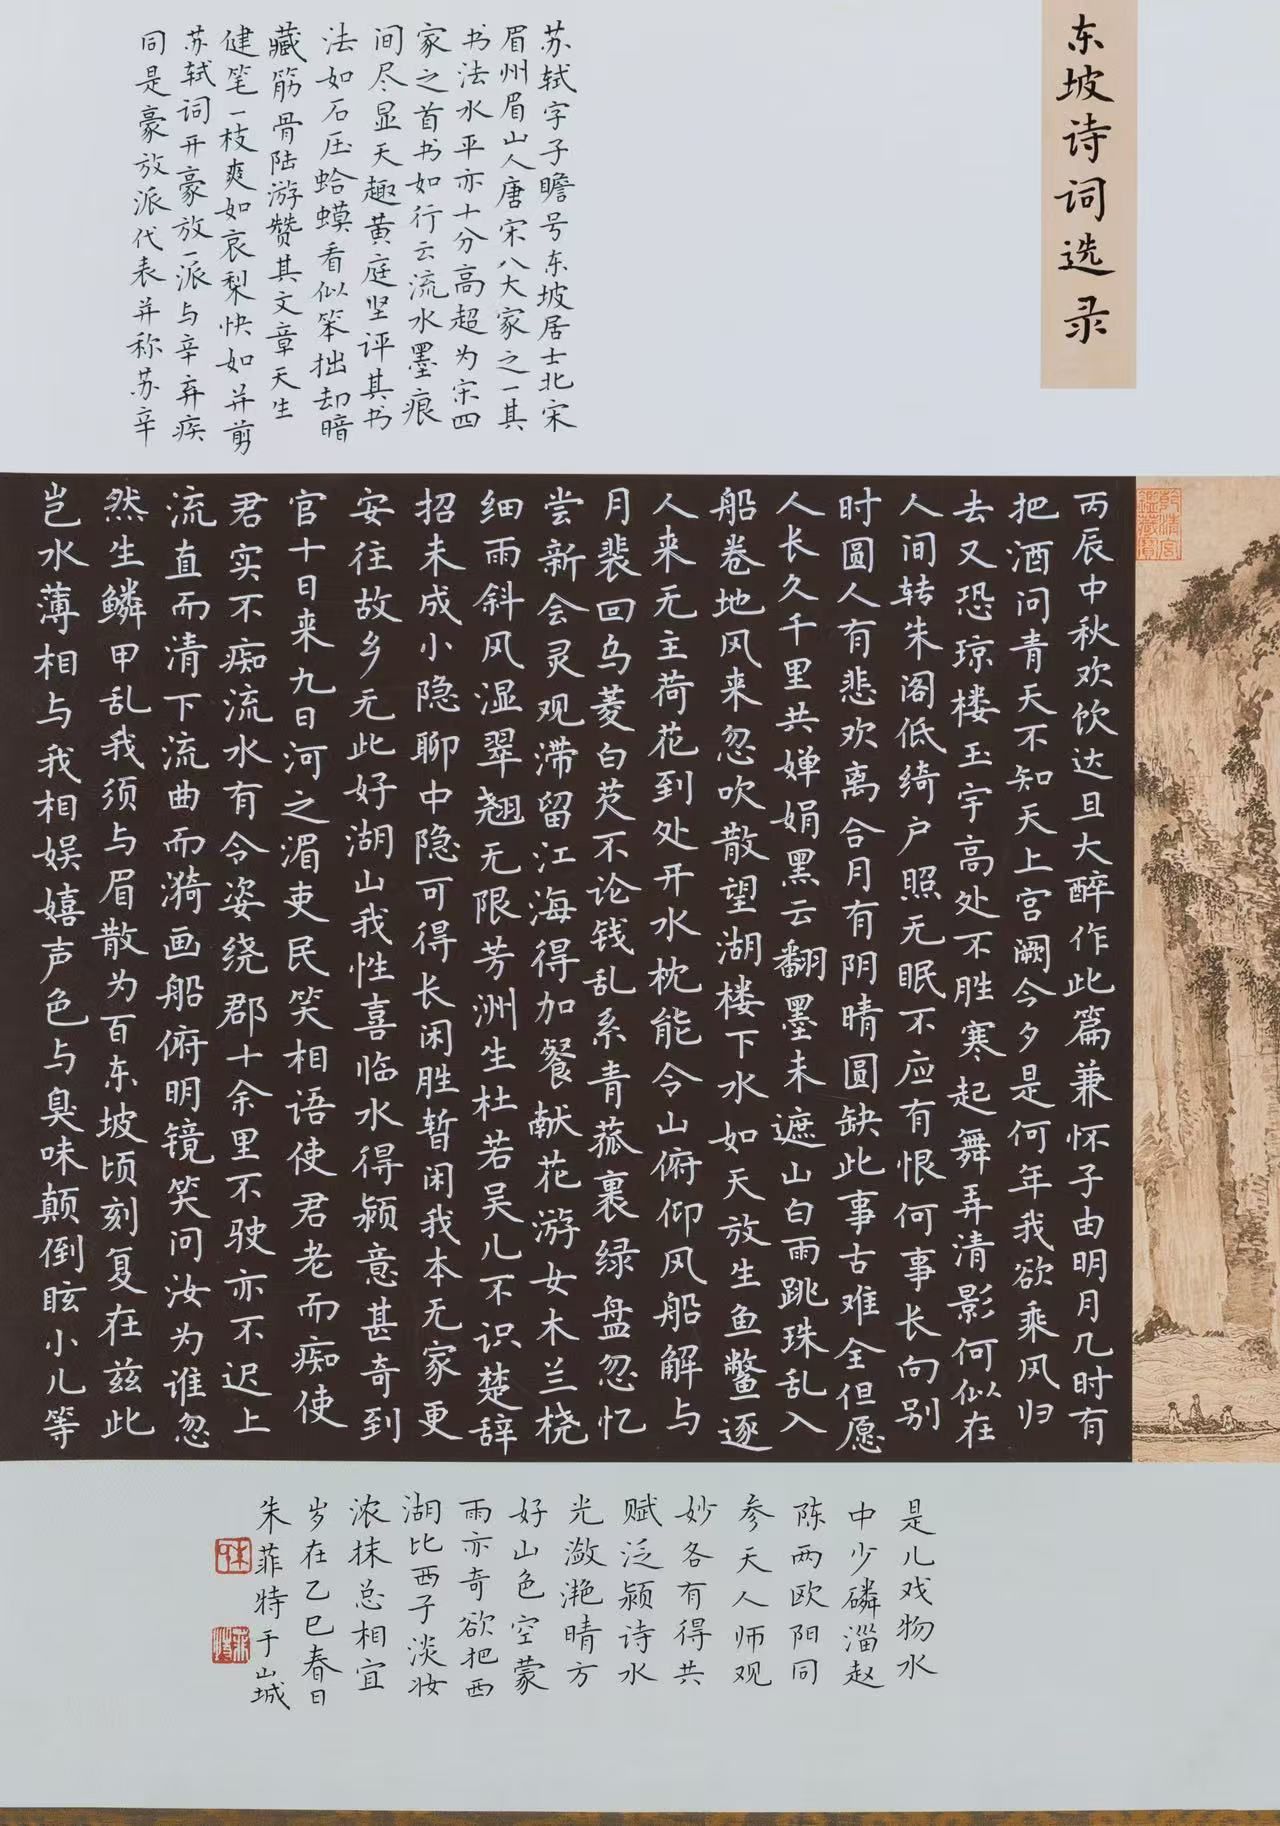 东坡诗词选录
苏轼字子瞻号东坡居士北宋
眉州眉山人唐宋八大家之一其
书法水平亦十分高超为宋四
家之首书如行云流水墨痕
间尽显天趣黄庭坚评其书
法如石压蛤蟆看似笨拙却暗
藏筋骨陆游赞其文章天生
健笔一枝爽如哀梨快如并剪
苏轼词开豪放一派与辛弃疾
同是豪放派代表并称苏辛
丙辰中秋欢饮达旦大醉作此篇兼怀子由明月几时有
把酒问青天不知天上宫阙今夕是何年我欲乘风归
去又恐琼楼玉宇高处不胜寒起舞弄清影何似在
人间转朱阁低绮户照无眠不应有恨何事长向别
时圆人有悲欢离合月有阴晴圆缺此事古难全但愿
人长久千里共婵娟黑云翻墨未遮山白雨跳珠乱入
船卷地风来忽吹散望湖楼下水如天放生鱼鳖逐
人来无主荷花到处开水枕能令山俯仰风船解与
月裴回乌菱白芡不论钱乱系青菰裹绿盘忽忆
尝新会灵观滞留江海得加餐献花游女木兰桡
细雨斜风湿翠翘无限芳洲生杜若吴儿不识楚辞
招未成小隐聊中隐可得长闲胜暂闲我本无家更
安往故乡无此好湖山我性喜临水得颍意甚奇到
官十日来九日河之湄吏民笑相语使君老而痴使
君实不痴流水有令姿绕郡十余里不驶亦不迟上
流直而清下流曲而漪画船俯明镜笑问汝为谁忽
然生鳞甲乱我须与眉散为百东坡顷刻复在兹此
岂水薄相与我相娱嬉声色与臭味颠倒眩小儿等
是儿戏物水
中少磷淄赵
陈两欧阳同
参天人师观
妙各有得共
赋泛颍诗水
光潋滟晴方
好山色空蒙
雨亦奇欲把西
湖比西子淡妆
浓抹总相宜
岁在乙巳春日
朱菲特于山城
乾清宫
鉴藏宝